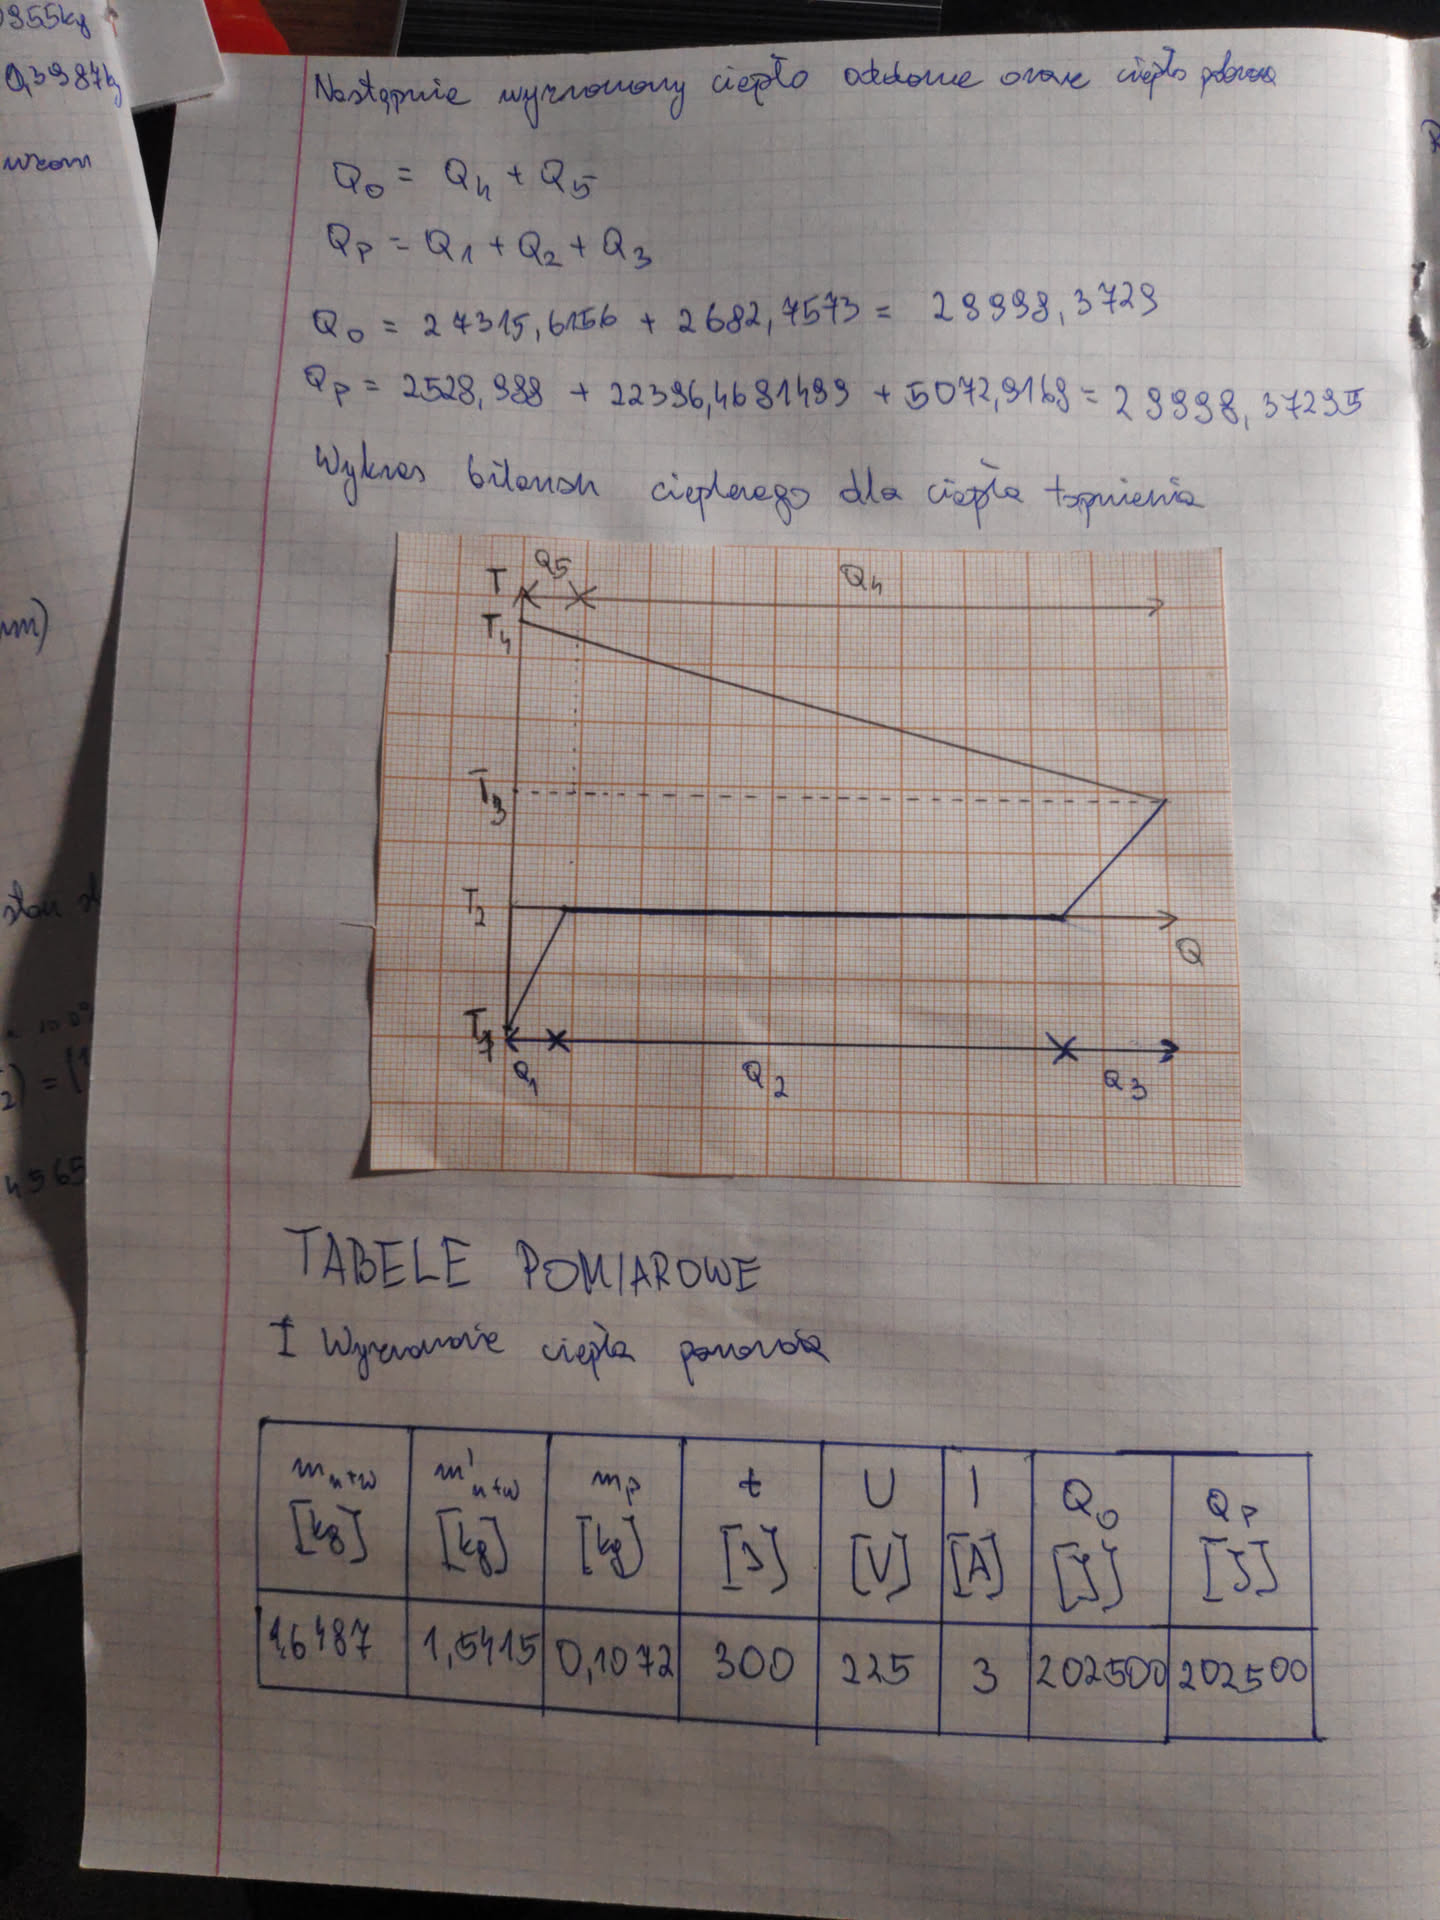 0355kg
0,3987kg
wzom
Następnie wyznamy ciepło oddane oraz ciepło pobrane
Q₀ = Q₄ + Q₅
Qₚ = Q₁ + Q₂ + Q₃
Q₀ = 27315,6156 + 2682,7573 = 29998,3729
Qₚ = 2528,988 + 22396,4681499 + 5072,9169 = 29998,37295
Wykres bilansu cieplnego dla ciepła topnienia
T Q₅ Q₄
T₄
T₃
T₂
Q
T₁
Q₁ Q₂ Q₃
TABELE POMIAROWE
I Wyznaczanie ciepła parowania
mₙ₊w [kg] m'ₙ₊w [kg] mₚ [kg] t [s] U [V] I [A] Q₀ [J] Qₚ [J]
1,6487 1,5415 0,1072 300 225 3 202500 202500